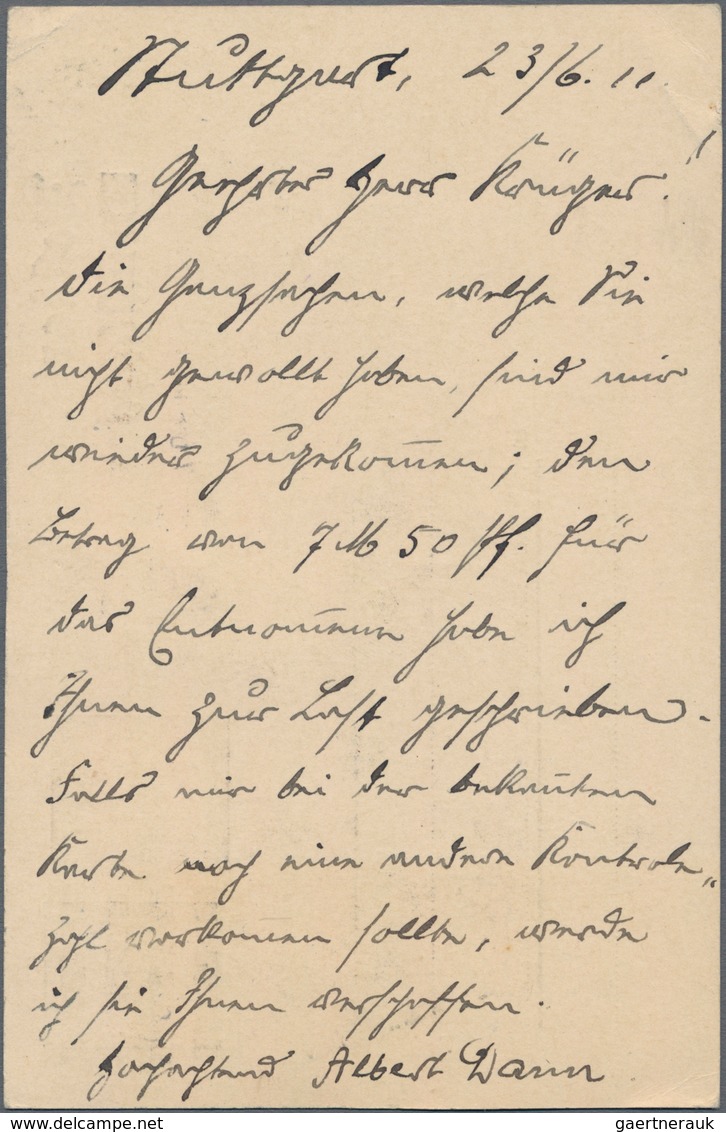 Stuttgart, 23/6. 11.
Geehrter Herr Krüger!
Die Ganzsachen, welche Sie
nicht gewollt haben, sind mir
wieder zugekom̄en; den
Betrag von 7 M 50 Pf. für
das Entnom̄ene habe ich
Ihnen zur Last geschrieben.
Falls mir bei der bekan̄ten
Karte noch eine andere Kontrole„
zahl vorkom̄en sollte, werde
ich sie Ihnen verschaffen.
Hochachtend Albert Dann
gaertnerauk@delcampe